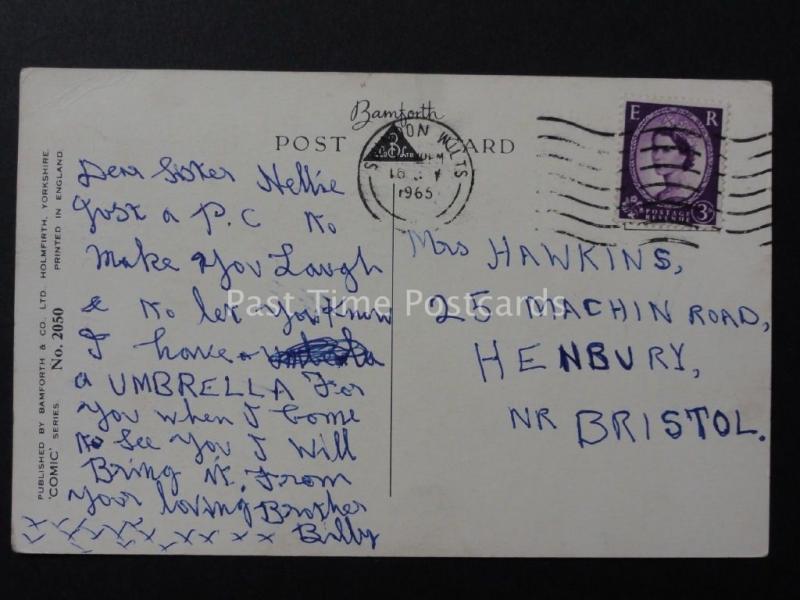 PUBLISHED BY BAMFORTH & CO., LTD. HOLMFIRTH, YORKSHIRE.
'COMIC' SERIES No. 2050 PRINTED IN ENGLAND
Bamforth
POST CARD
Dear Sister Nellie
Just a P.C to
Make You Laugh
& to let You Know
I have
a UMBRELLA For
You when I Come
to See You I Will
Bring it. From
Your loving Brother
Billy
x x x x x x x x x x x
WILTS
1965
E R
POSTAGE
REVENUE
3D
Mrs HAWKINS,
25 MACHIN ROAD,
HENBURY,
NR BRISTOL.
Past Time Postcards